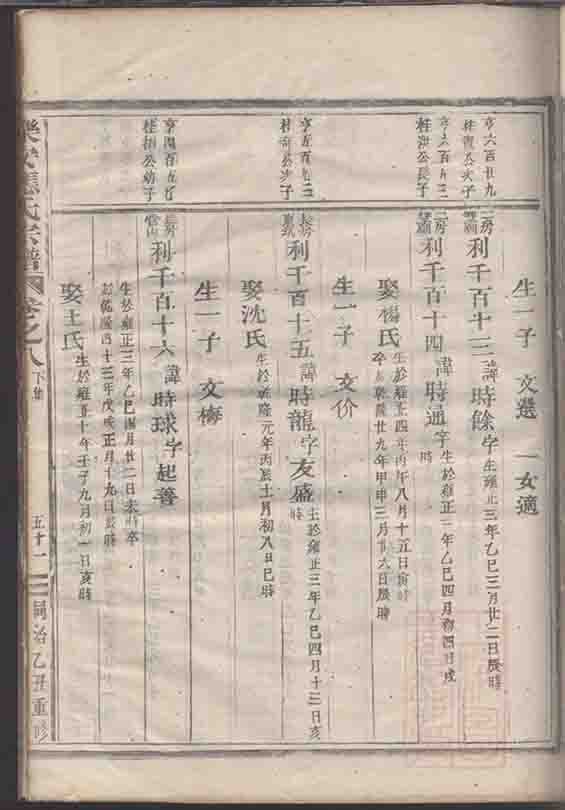 生一子 文選 一女適
亨六百廿九
桂 公次子
二房
利千百十三 諱時餘字 生雍正三年乙巳三月廿二日辰時
亨六百 三
桂 公長子
二房
利千百十四 諱時通字 生於雍正三年乙巳四月初四日戌時
娶楊氏 生於雍正四年丙午八月十五日寅時
卒 乾隆廿九年甲申三月廿六日辰時
生一子 文价
亨 百 三
桂 公次子
長房
利千百十五 諱時龍字友盛 生於雍正三年乙巳四月十三日亥時
娶沈氏 生於乾隆元年丙辰十月初八日巳時
生一子 文梅
亨 百
桂 公幼子
長房
利千百十六 諱時球字起善
生於雍正三年乙巳 月廿二日未時卒
於乾隆四十三年戊戌正月十九日辰時
娶王氏 生於雍正十年壬子九月初一日亥時
氏宗譜 卷之八 下集 五十一 同治乙丑重修